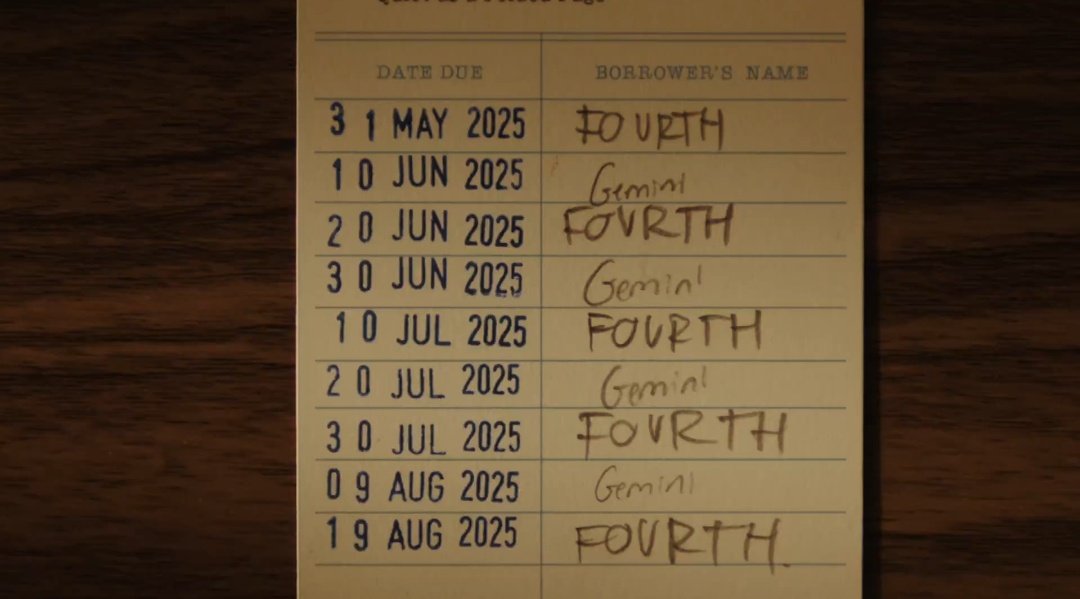 DATE DUE BORROWER'S NAME
31 MAY 2025 FOURTH
10 JUN 2025 Gemini
20 JUN 2025 FOURTH
30 JUN 2025 Gemini
10 JUL 2025 FOURTH
20 JUL 2025 Gemini
30 JUL 2025 FOURTH
09 AUG 2025 Gemini
19 AUG 2025 FOURTH.